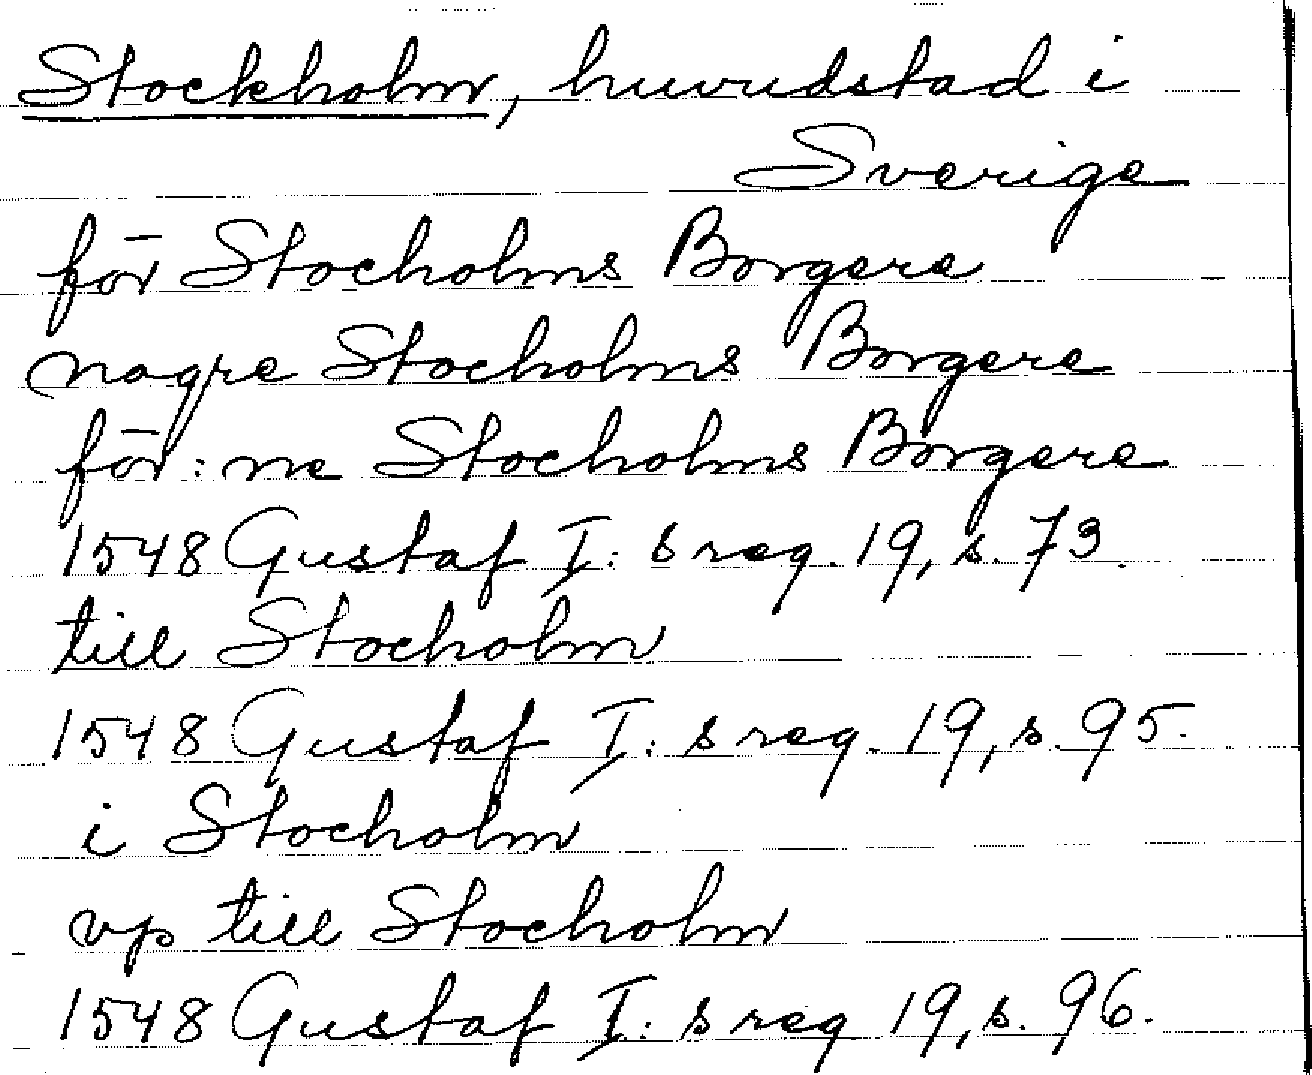 Stockholm, huvudstad i
Sverige
för Stocholms Borgere
nogre Stocholms Borgere
för: ne Stocholms Borgere
1548 Gustaf I: s reg. 19, s. 73.
till Stocholm
1548 Gustaf I: s reg. 19, s. 95.
i Stocholm
vp till Stocholm
1548 Gustaf I: s reg 19, s. 96.